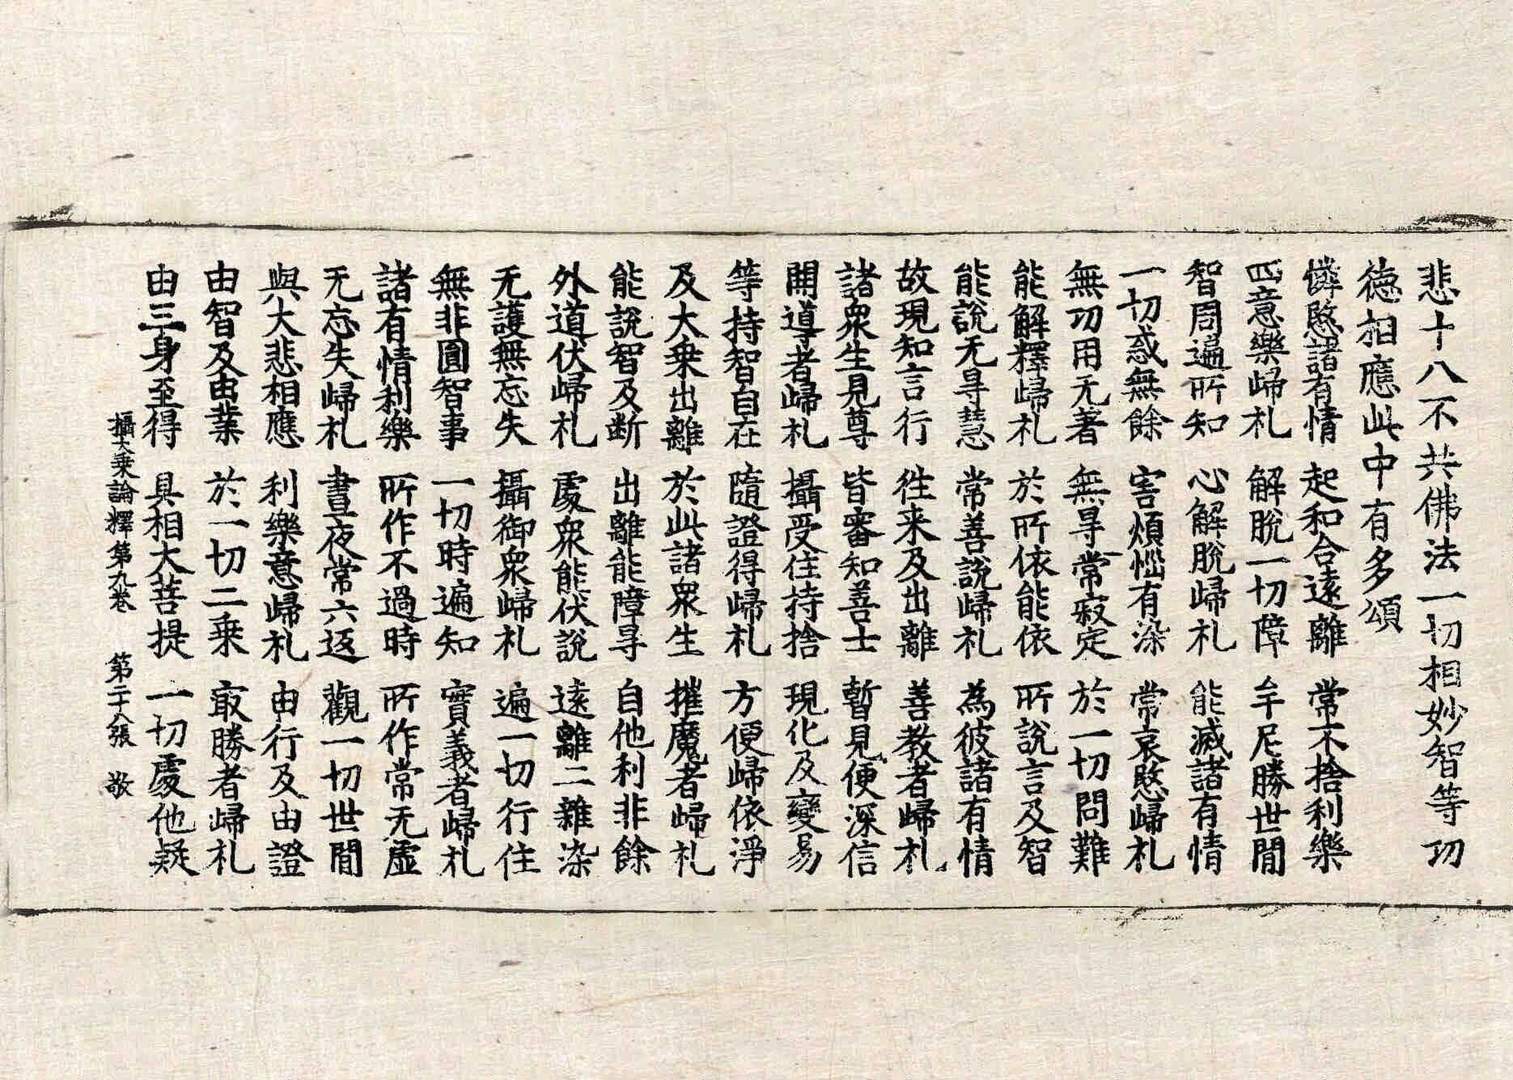 悲十八不共佛法一切相妙智等功
德相應此中有多頌
憐愍諸有情　起和合遠離　常不捨利樂
四意樂歸礼　解脫一切障　牟尼勝世間
智周遍所知　心解脫歸礼　能滅諸有情
一切惑無餘　害煩惱有染　常哀愍歸礼
無功用无著　無㝵常寂定　於一切問難
能解釋歸礼　於所依能依　所說言及智
能說无㝵慧　常善說歸礼　為彼諸有情
故現知言行　往来及出離　善教者歸礼
諸衆生見尊　皆審知善士　暫見便深信
開導者歸礼　攝受住持捨　現化及變易
等持智自在　隨證得歸礼　方便歸依淨
及大乗出離　於此諸衆生　摧魔者歸礼
能說智及断　出離能障㝵　自他利非餘
外道伏歸礼　處衆能伏說　遠離二雜染
无護無忘失　攝御衆歸礼　遍一切行住
無非圓智事　一切時遍知　實義者歸礼
諸有情利樂　所作不過時　所作常无虛
无忘失歸礼　晝夜常六返　觀一切世間
與大悲相應　利樂意歸礼　由行及由證
由智及由業　於一切二乗　㝡勝者歸礼
由三身至得　具相大菩提　一切處他疑
攝大乗論釋第九卷　第二十八張　敬